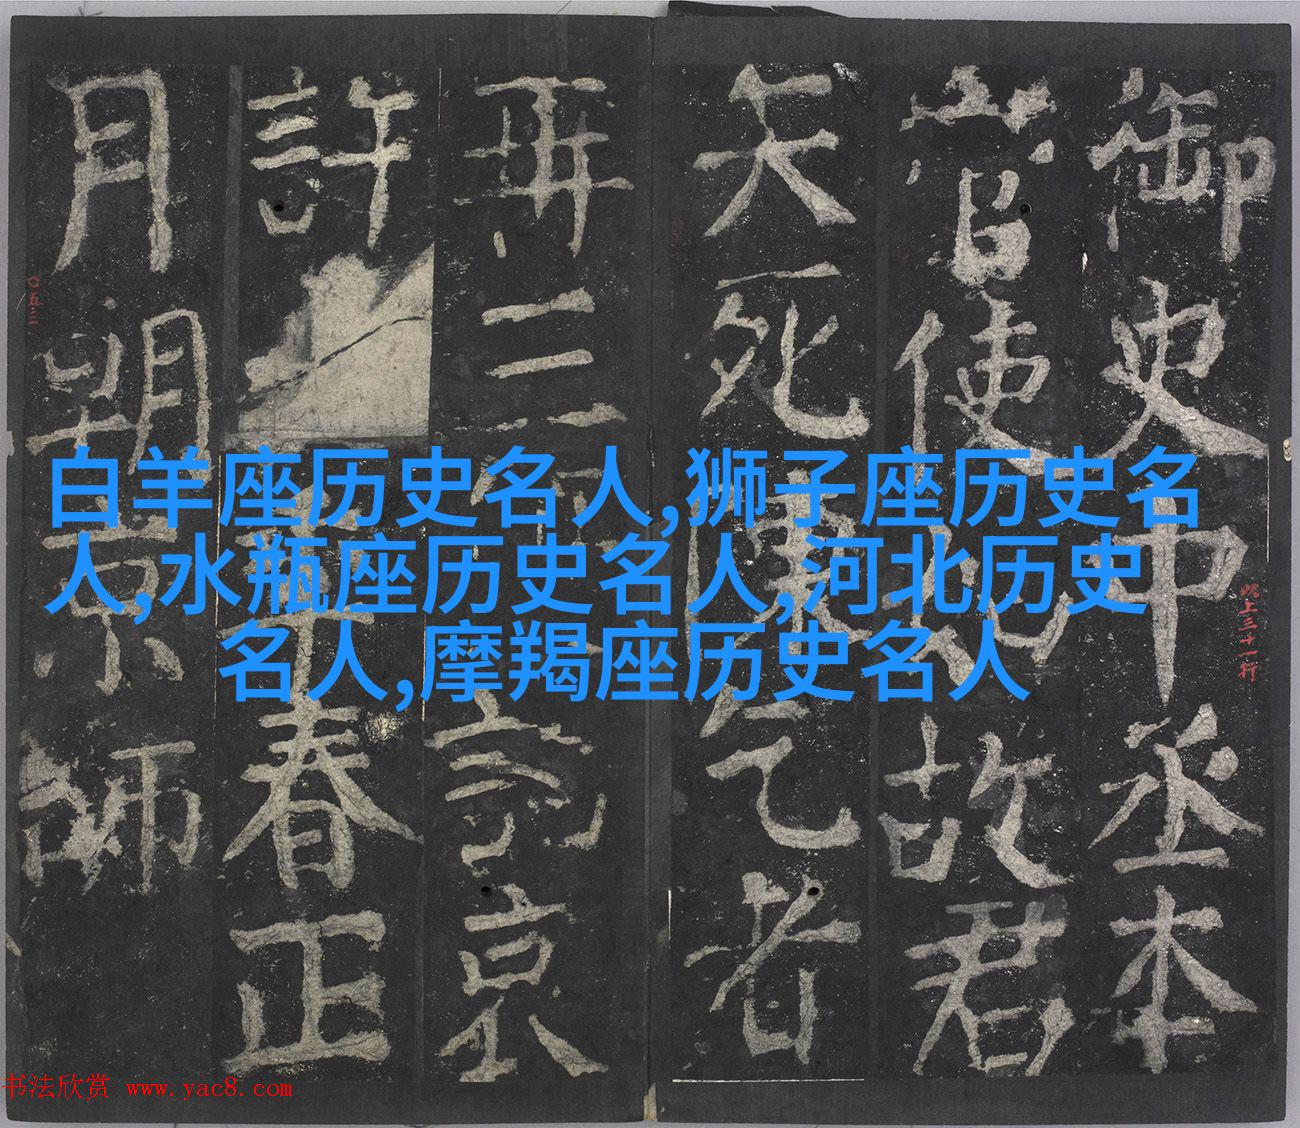 御史中丞本
當使
故君
天死
乞者
再三
京
許
春正
月朔京
師
〇五三
此上三十一行
白羊座历史名人,狮子座历史名
人,水瓶座历史名人,河北历史
名人,摩羯座历史名人
书法欣赏 www.yac8.com